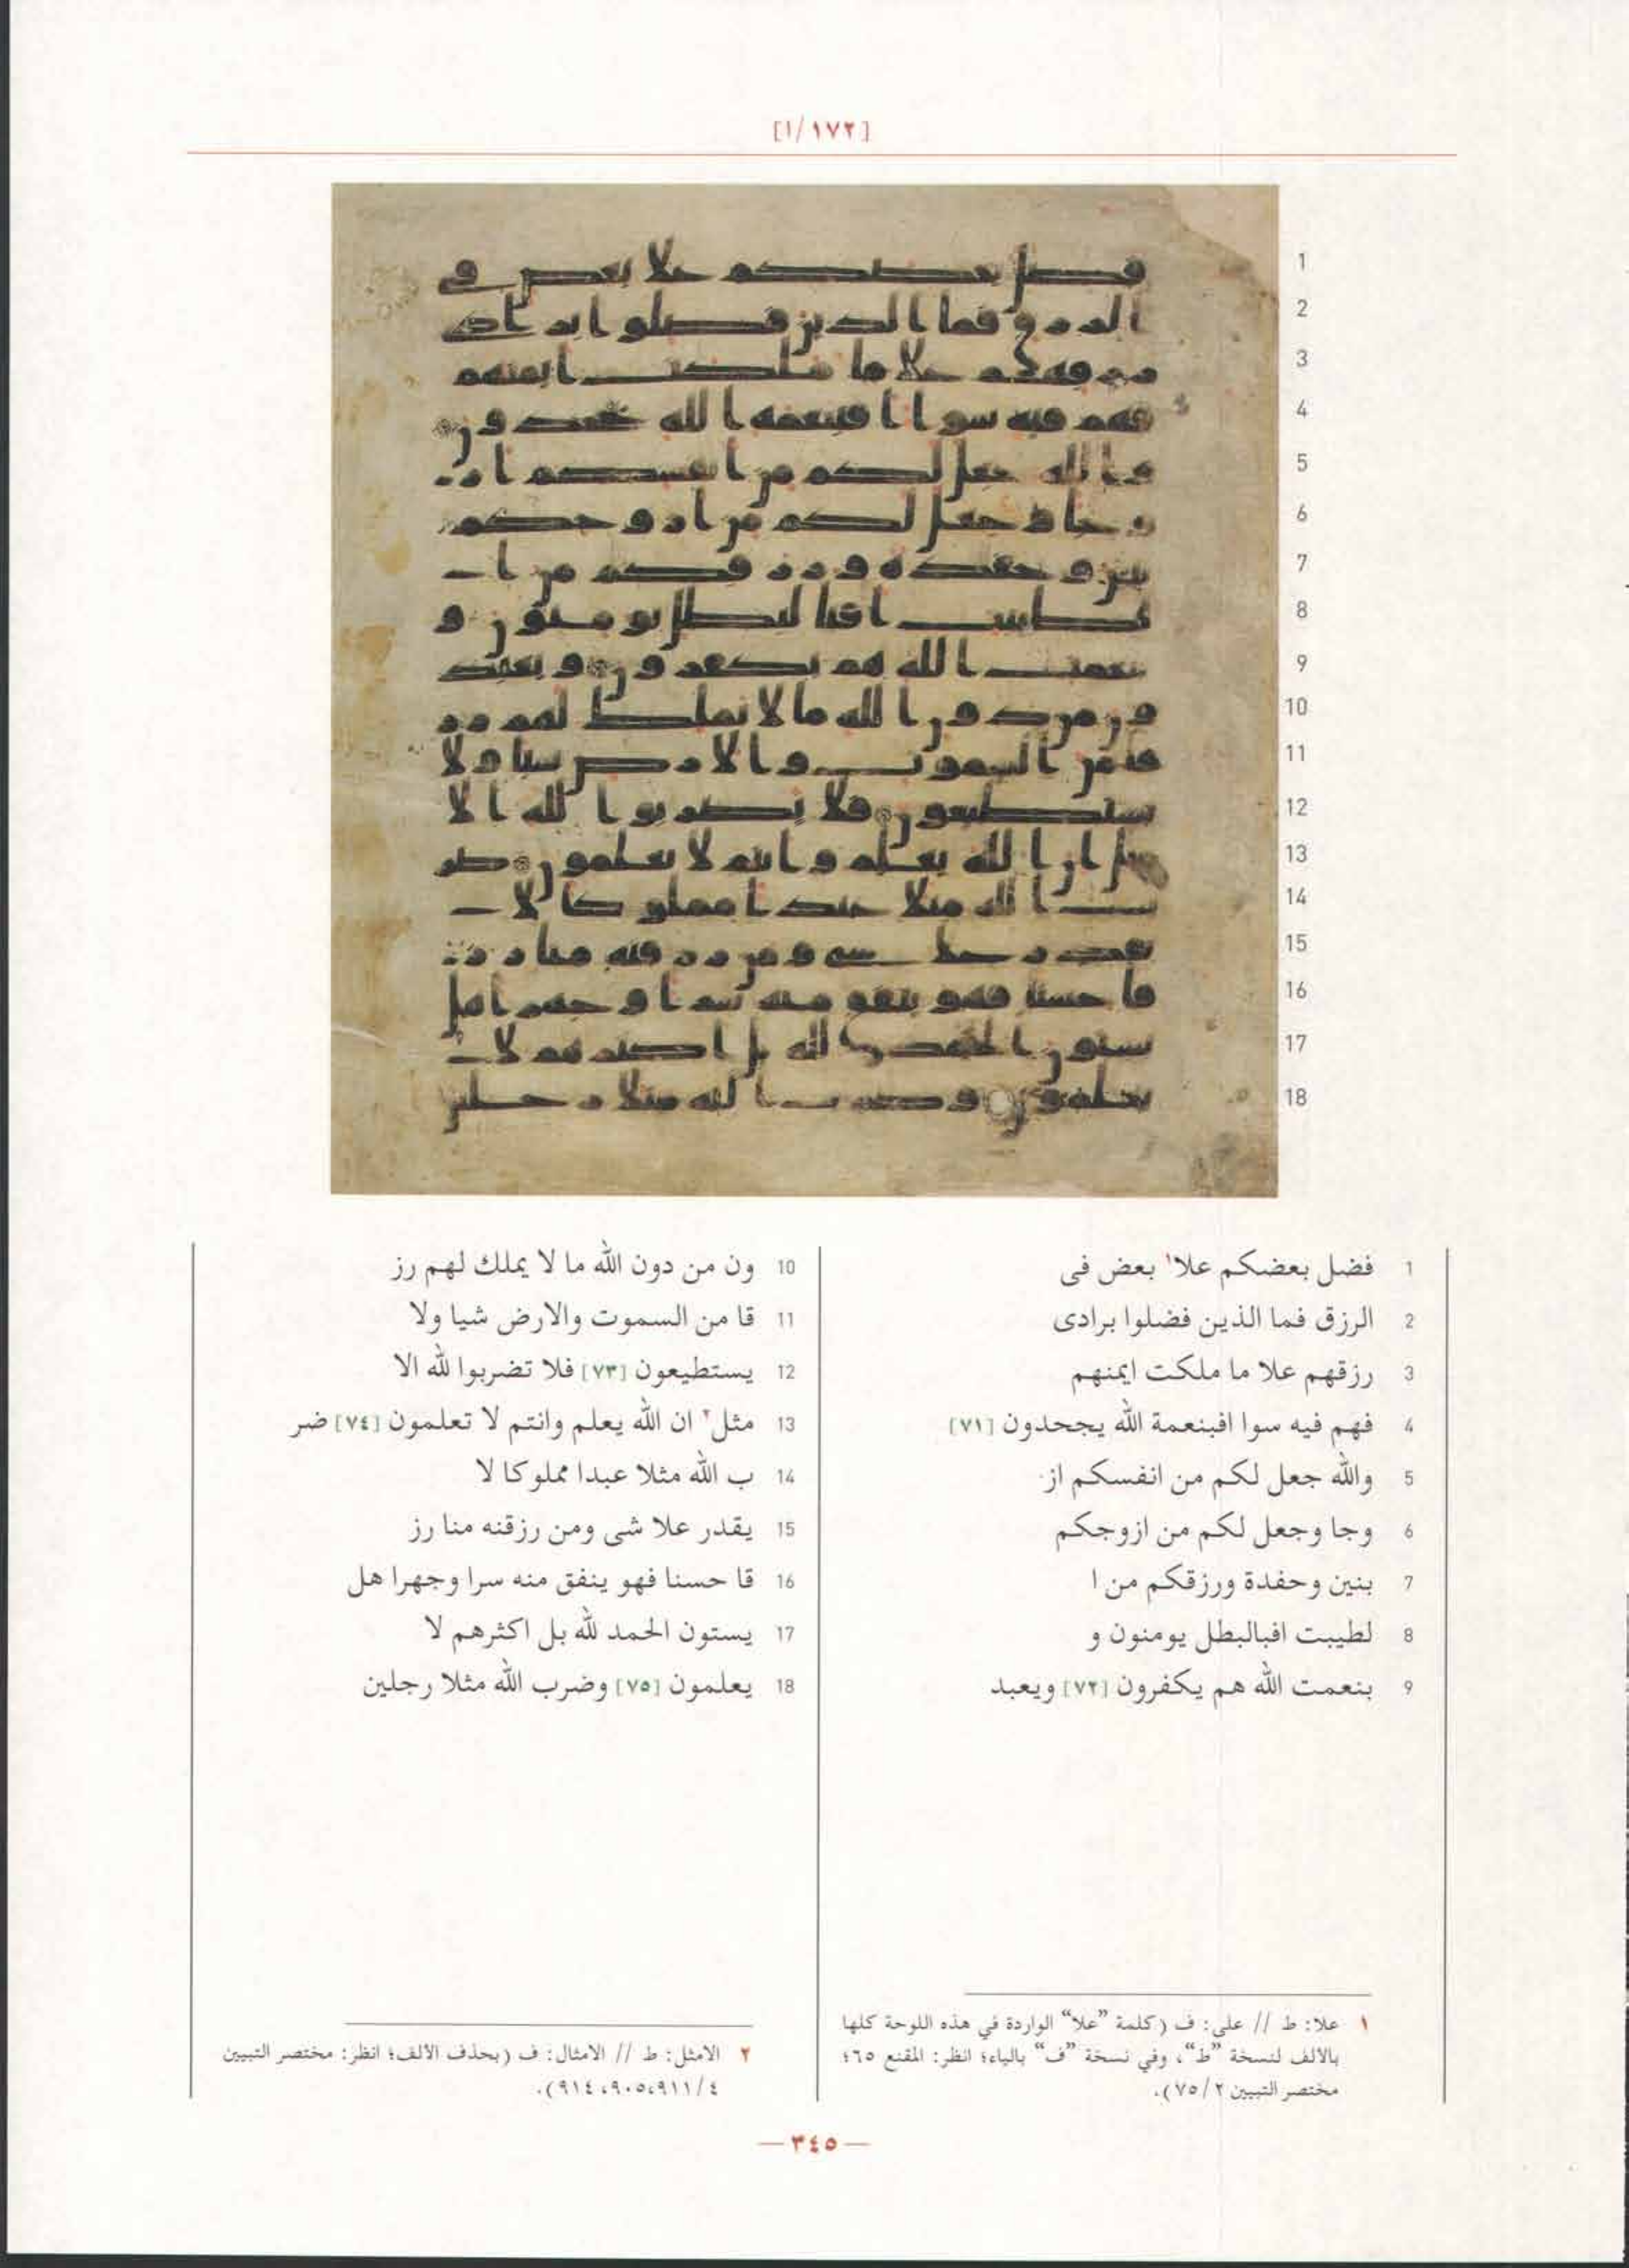 [١/١٧٢]
1
2
3
4
5
6
7
8
9
10
11
12
13
14
15
16
17
18
1 فضل بعضكم علا١ بعض فى
2 الرزق فما الذين فضلوا برادى
3 رزقهم علا ما ملكت ايمنهم
4 فهم فيه سوا افبنعمة الله يجحدون [٧١]
5 والله جعل لكم من انفسكم از
6 وجا وجعل لكم من ازوجكم
7 بنين وحفدة ورزقكم من ا
8 لطيبت افبالبطل يومنون و
9 بنعمت الله هم يكفرون [٧٢] ويعبد
10 ون من دون الله ما لا يملك لهم رز
11 قا من السموت والارض شيا ولا
12 يستطيعون [٧٣] فلا تضربوا لله الا
13 مثل٢ ان الله يعلم وانتم لا تعلمون [٧٤] ضر
14 ب الله مثلا عبدا مملوكا لا
15 يقدر علا شى ومن رزقنه منا رز
16 قا حسنا فهو ينفق منه سرا وجهرا هل
17 يستون الحمد لله بل اكثرهم لا
18 يعلمون [٧٥] وضرب الله مثلا رجلين
١ علا: ط // على: ف (كلمة ”علا“ الواردة في هذه اللوحة كلها
بالألف لنسخة ”ط“، وفي نسخة ”ف“ بالياء؛ انظر: المقنع ٦٥؛
مختصر التبيين ٧٥/٢).
٢ الامثل: ط // الامثال: ف (بحذف الألف؛ انظر: مختصر التبيين
٩١٤،٩٠٥،٩١١/٤).
— ٣٤٥ —